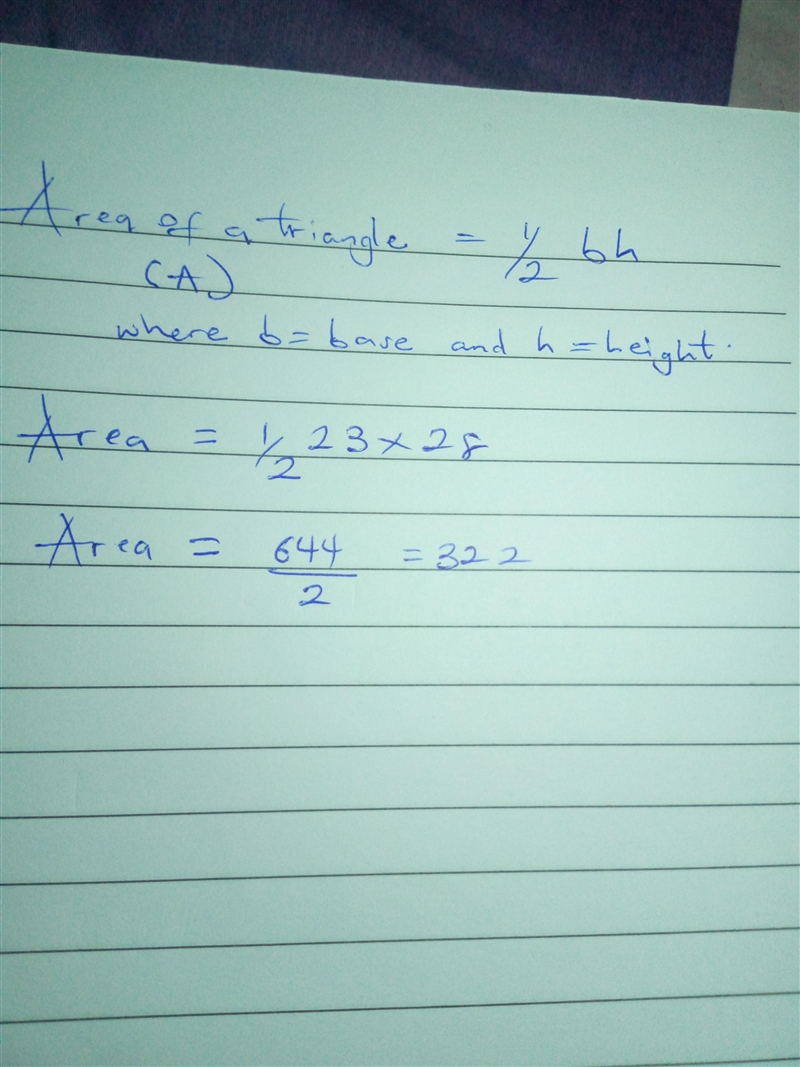 Area of a triangle = 1/2 bh
(A)
where b = base and h = height.
Area = 1/2 23 x 28
Area = 644/2 = 322